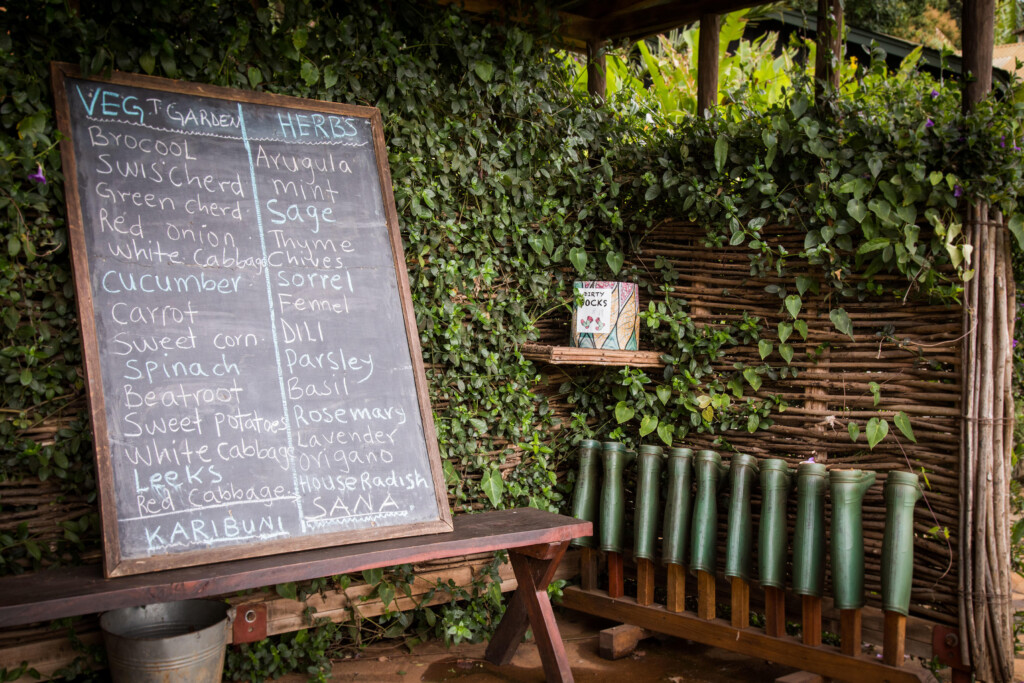 VEG.T GARDEN
BrocooL
Swis'cherd
Green cherd
Red onion
White Cabbage
Cucumber
Carrot
Sweet corn.
Spinach
Beatroot
Sweet Potatoes
White Cabbage
LeeKs
Red Cabbage
KARIBUNI
HERBS
Arugula
mint
Sage
Thyme
Chives
Sorrel
Fennel
DILL
Parsley
Basil
Rosemary
Lavender
origano
House Radish
SANA
DIRTY
SOCKS